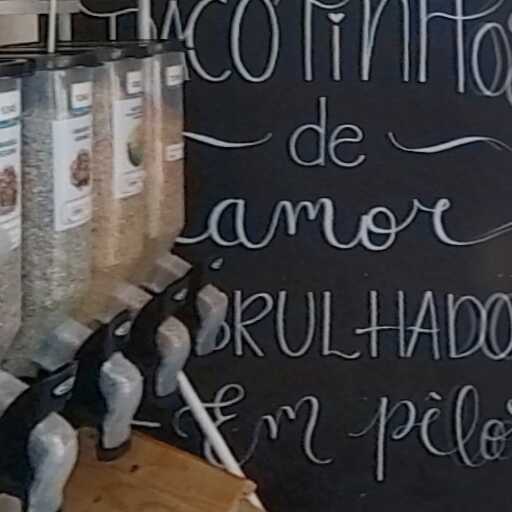 ACOTINHOS
de
amor
BRULHADO
Em pêlo